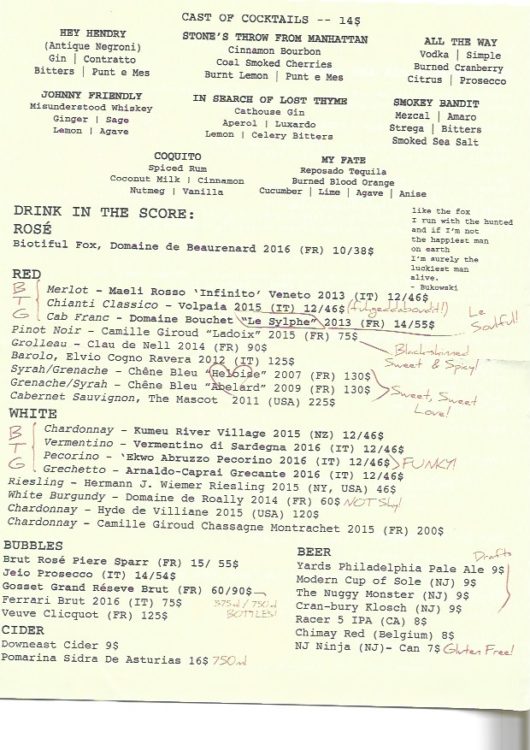 CAST OF COCKTAILS -- 14$
HEY HENDRY
(Antique Negroni)
Gin | Contratto
Bitters | Punt e Mes
STONE'S THROW FROM MANHATTAN
Cinnamon Bourbon
Coal Smoked Cherries
Burnt Lemon | Punt e Mes
ALL THE WAY
Vodka | Simple
Burned Cranberry
Citrus | Prosecco
JOHNNY FRIENDLY
Misunderstood Whiskey
Ginger | Sage
Lemon | Agave
IN SEARCH OF LOST THYME
Cathouse Gin
Aperol | Luxardo
Lemon | Celery Bitters
SMOKEY BANDIT
Mezcal | Amaro
Strega | Bitters
Smoked Sea Salt
COQUITO
Spiced Rum
Coconut Milk | Cinnamon
Nutmeg | Vanilla
MY FATE
Reposado Tequila
Burned Blood Orange
Cucumber | Lime | Agave | Anise
like the fox
I run with the hunted
and if I'm not
the happiest man
on earth
I'm surely the
luckiest man
alive.
- Bukowski
DRINK IN THE SCORE:
ROSÉ
Biotiful Fox, Domaine de Beaurenard 2016 (FR) 10/38$
RED
BTG
Merlot - Maeli Rosso 'Infinito' Veneto 2013 (IT) 12/46$
Chianti Classico - Volpaia 2015 (IT) 12/46$ (fuhgeddaboudit!)
Cab Franc - Domaine Bouchet "Le Sylphe" 2013 (FR) 14/55$ Le Soulful!
Pinot Noir - Camille Giroud "Ladoix" 2015 (FR) 75$
Grolleau - Clau de Nell 2014 (FR) 90$ Black-skinned
Barolo, Elvio Cogno Ravera 2012 (IT) 125$ Sweet & Spicy!
Syrah/Grenache - Chêne Bleu "Heloise" 2007 (FR) 130$
Grenache/Syrah - Chêne Bleu "Abelard" 2009 (FR) 130$ Sweet, Sweet
Cabernet Sauvignon, The Mascot 2011 (USA) 225$ Love!
WHITE
BTG
Chardonnay - Kumeu River Village 2015 (NZ) 12/46$
Vermentino - Vermentino di Sardegna 2016 (IT) 12/46$
Pecorino - 'Ekwo Abruzzo Pecorino 2016 (IT) 12/46$ FUNKY!
Grechetto - Arnaldo-Caprai Grecante 2016 (IT) 12/46$
Riesling - Hermann J. Wiemer Riesling 2015 (NY, USA) 46$
White Burgundy - Domaine de Roally 2014 (FR) 60$ NOT Shy!
Chardonnay - Hyde de Villiane 2015 (USA) 120$
Chardonnay - Camille Giroud Chassagne Montrachet 2015 (FR) 200$
BUBBLES
Brut Rosé Piere Sparr (FR) 15/ 55$
Jeio Prosecco (IT) 14/54$
Gosset Grand Réseve Brut (FR) 60/90$
Ferrari Brut 2016 (IT) 75$ 375ml / 750ml
Veuve Clicquot (FR) 125$ BOTTLES!
CIDER
Downeast Cider 9$
Pomarina Sidra De Asturias 16$ 750ml
BEER Drafts
Yards Philadelphia Pale Ale 9$
Modern Cup of Sole (NJ) 9$
The Nuggy Monster (NJ) 9$
Cran-bury Klosch (NJ) 9$
Racer 5 IPA (CA) 8$
Chimay Red (Belgium) 8$
NJ Ninja (NJ)- Can 7$ Gluten Free!